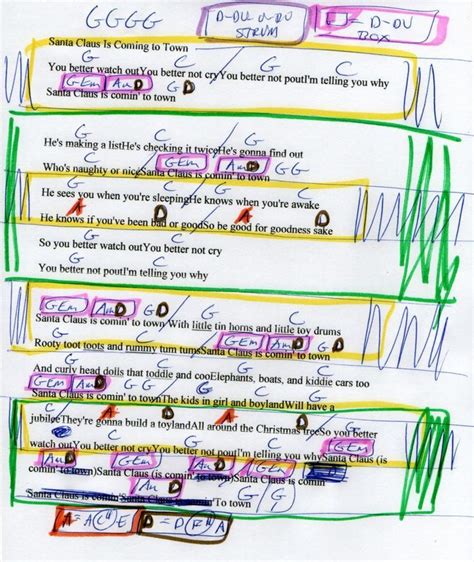 GGGG D-DU-U-DU STRUM = D-DU BOX
Santa Claus Is Coming to Town
G C G C
You better watch outYou better not cryYou better not poutI'm telling you why
GEm AmD G D
Santa Claus is comin' to town
G C G
He's making a listHe's checking it twiceHe's gonna find out
C GEm AmD G
Who's naughty or niceSanta Claus is comin' to town
G C G C
He sees you when you're sleepingHe knows when you're awake
A D A D
He knows if you've been bad or goodSo be for goodness sake
G C
So you better watch outYou better not cry
G C
You better not poutI'm telling you why
GEm AmD G D G C
Santa Claus is comin' to town With little tin horns and little toy drums
G C GEm AmD G D
Rooty toot toots and rummy tum tumsSanta Claus is comin' to town
G C G C
And curly head dolls that toddle and cooElephants, boats, and kiddie cars too
GEm AmD G D G C
Santa Claus is comin' to townThe kids in girl and boylandWill have a
A D A D
jubileeThey're gonna build a toylandAll around the Christmas treeSo you better
G C G C GEm
watch outYou better not cryYou better not poutI'm telling you whySanta Claus is (is
AmD GEm AmD GEm
comin' to town)Santa Claus is (is comin' to town)Santa Claus is comin
AmD G G
Santa Claus is comin'Santa Claus is comin' 'To town
A = A C# E D = D F# A